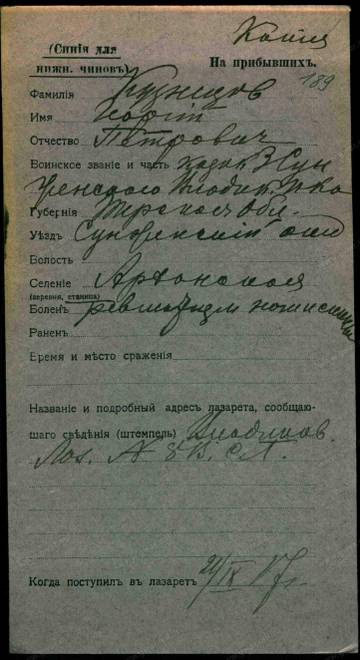 Копия
(Синія для
нижн. чиновъ)
На прибывшихъ.
189
Фамилія Кузнецов
Имя
Отчество Петрович
Воинское званіе и часть казак 3 Сун
женского Владик. п-ка
Губернія Терская Обл.
Уѣздъ Сунженскій отд
Волость
Селеніе Ардонская
(деревня, станица)
Боленъ ревматизм
Раненъ
Время и мѣсто сраженія
Названіе и подробный адресъ лазарета, сообщаю-
щаго свѣдѣнія (штемпель) Владиков.
Лаз. № 8 В. С.
Когда поступилъ въ лазаретъ 21/IX